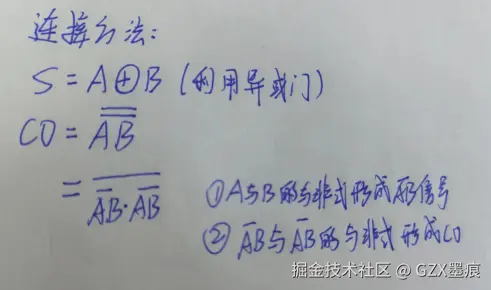 连接方法:
S = A⊕B (利用异或门)
CO = \overline{\overline{AB}}
= \overline{\overline{AB}·\overline{AB}}
① A与B的与非式形成\overline{AB}信号
② \overline{AB}与\overline{AB}的与非式形成CO
掘金技术社区 @ GZX墨痕